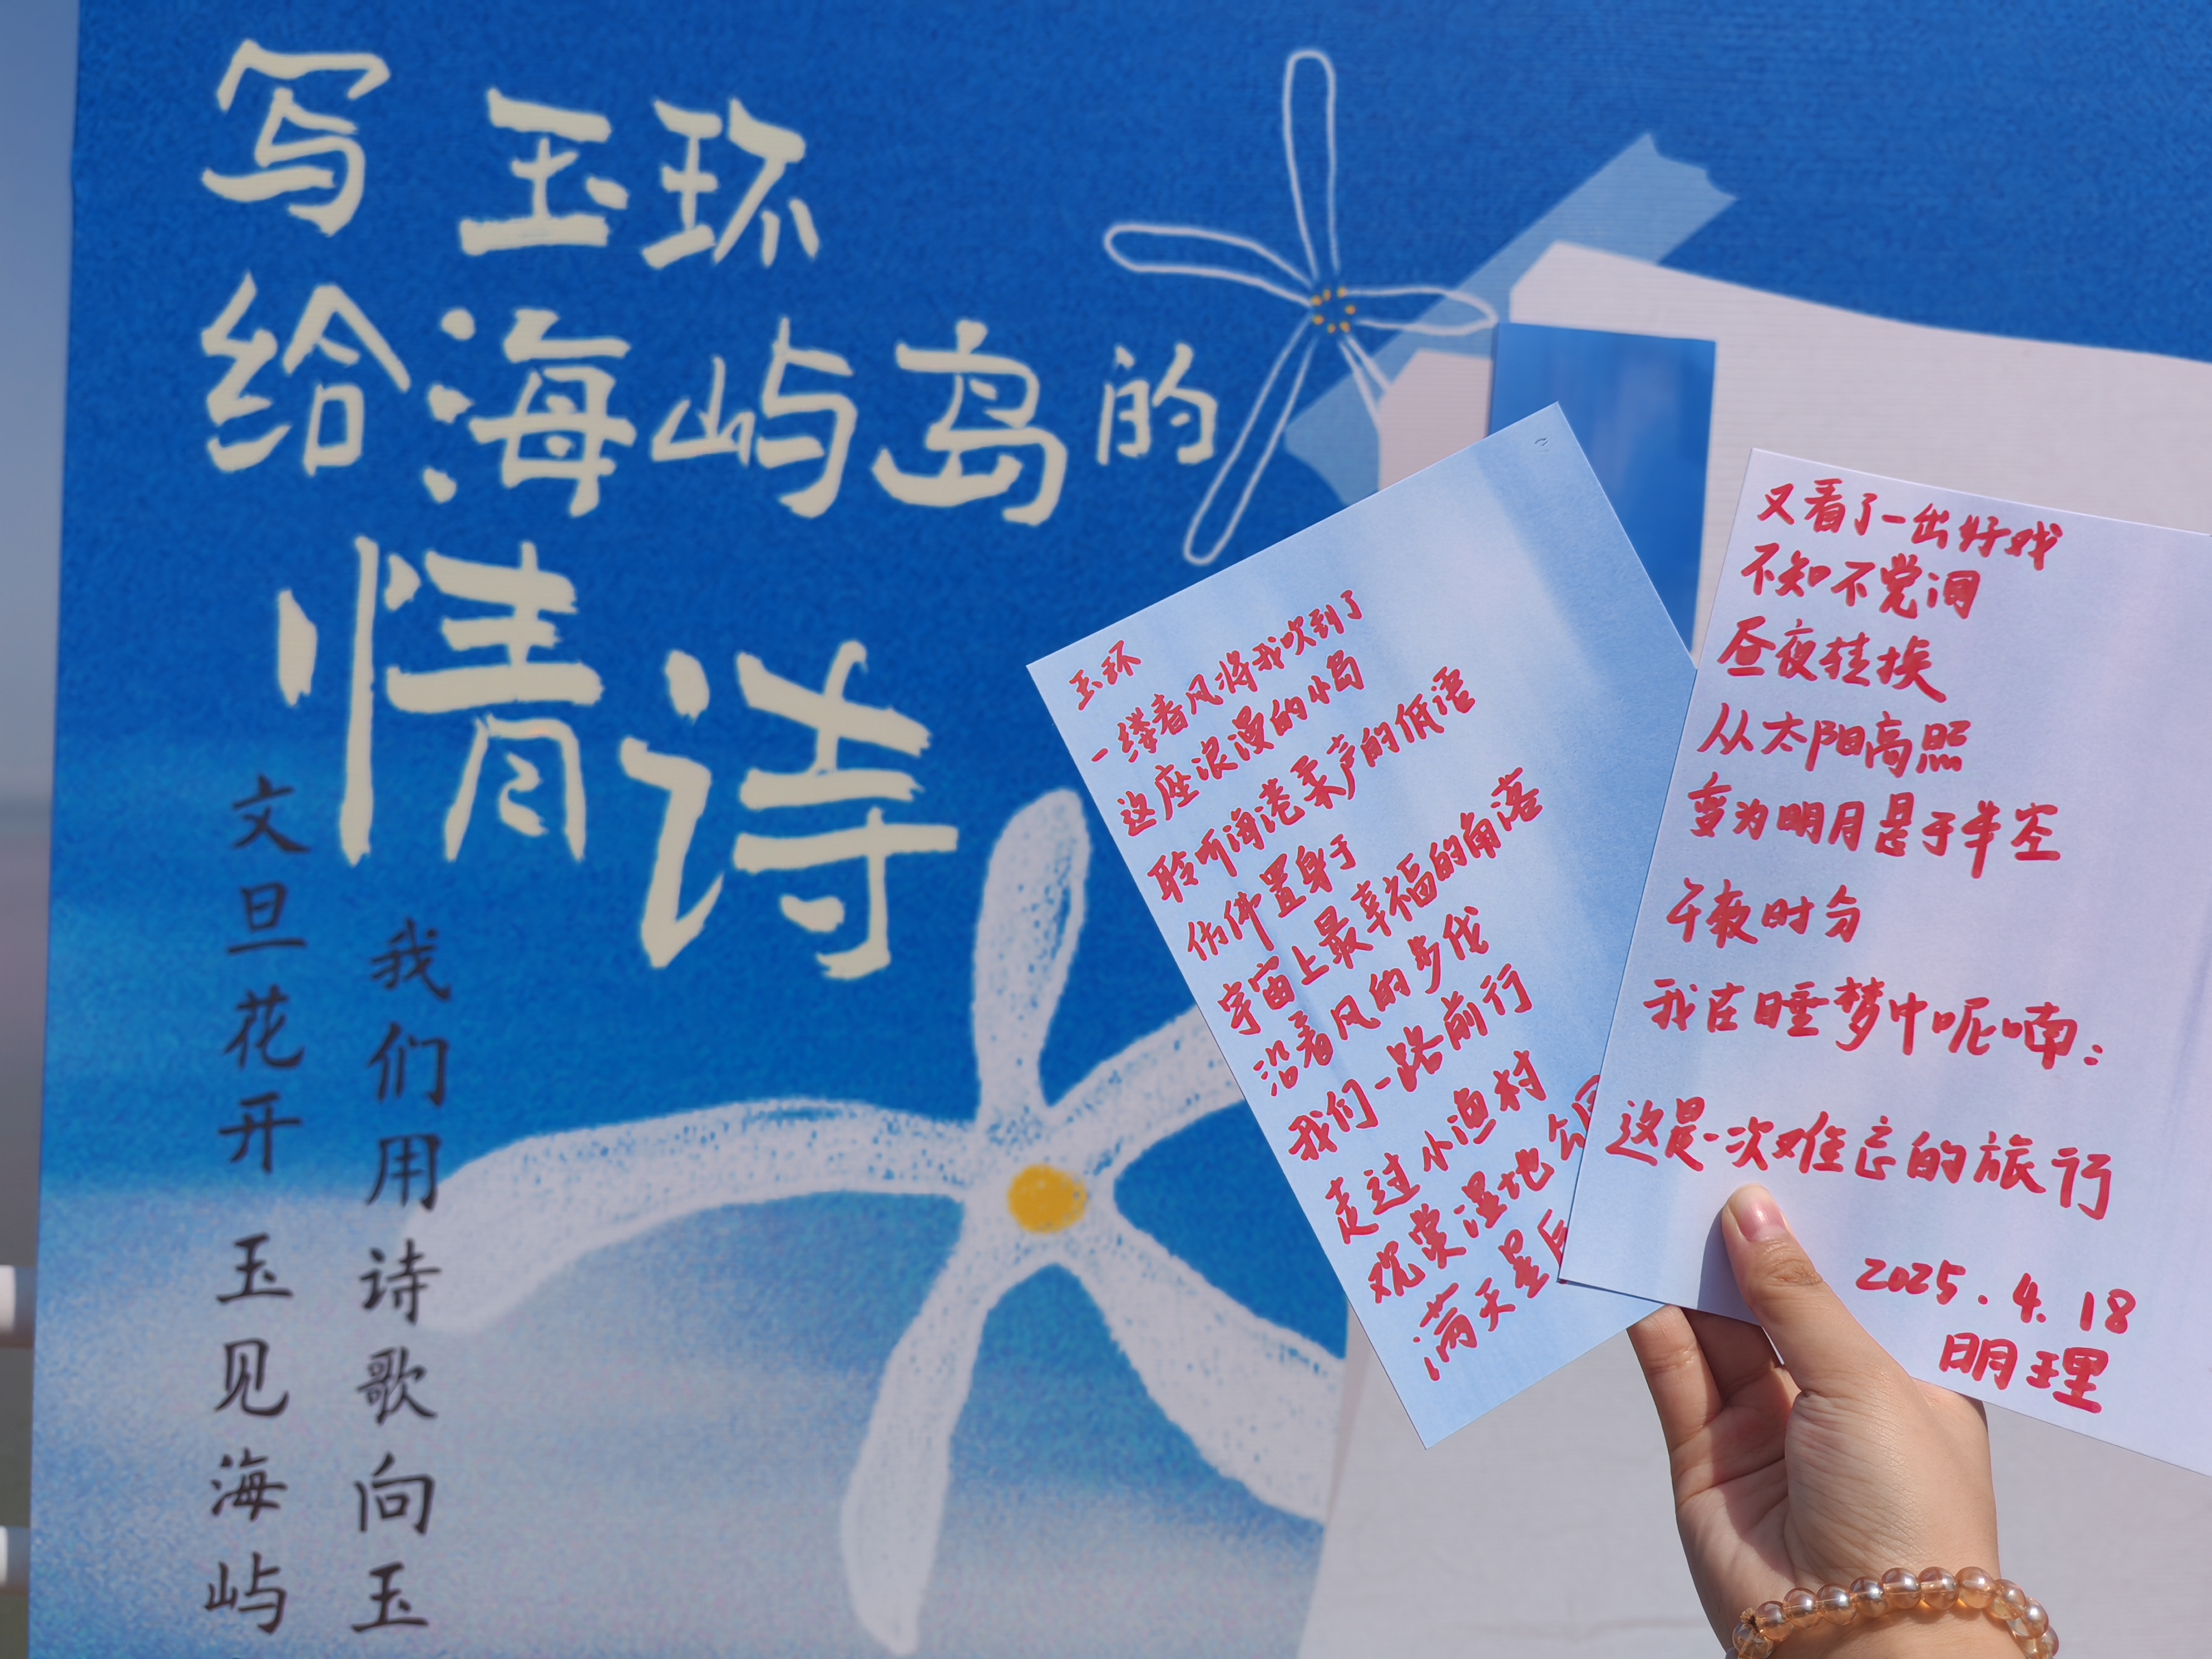 写玉环
给海屿岛的
情诗
文旦花开 玉见海屿
我们用诗歌向玉
玉环
一缕春风将我吹到了
这座浪漫的小岛
聆听海港柔声的低语
仿佛置身于
宇宙上最幸福的角落
沿着风的步伐
我们一路前行
走过小渔村
观赏湿地公
满天星辰
又看了一出好戏
不知不觉间
昼夜转换
从太阳高照
变为明月悬于半空
午夜时分
我在睡梦中呢喃：
这是一次难忘的旅行
2025.4.18
明理